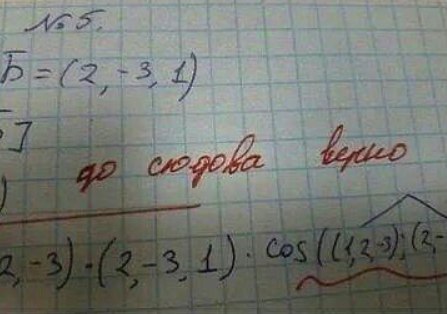 № 5.
Б = (2, -3, 1)
Б]
)
до сюдова верно
2, -3) · (2, -3, 1) · cos((1, 2, -3); (2, -